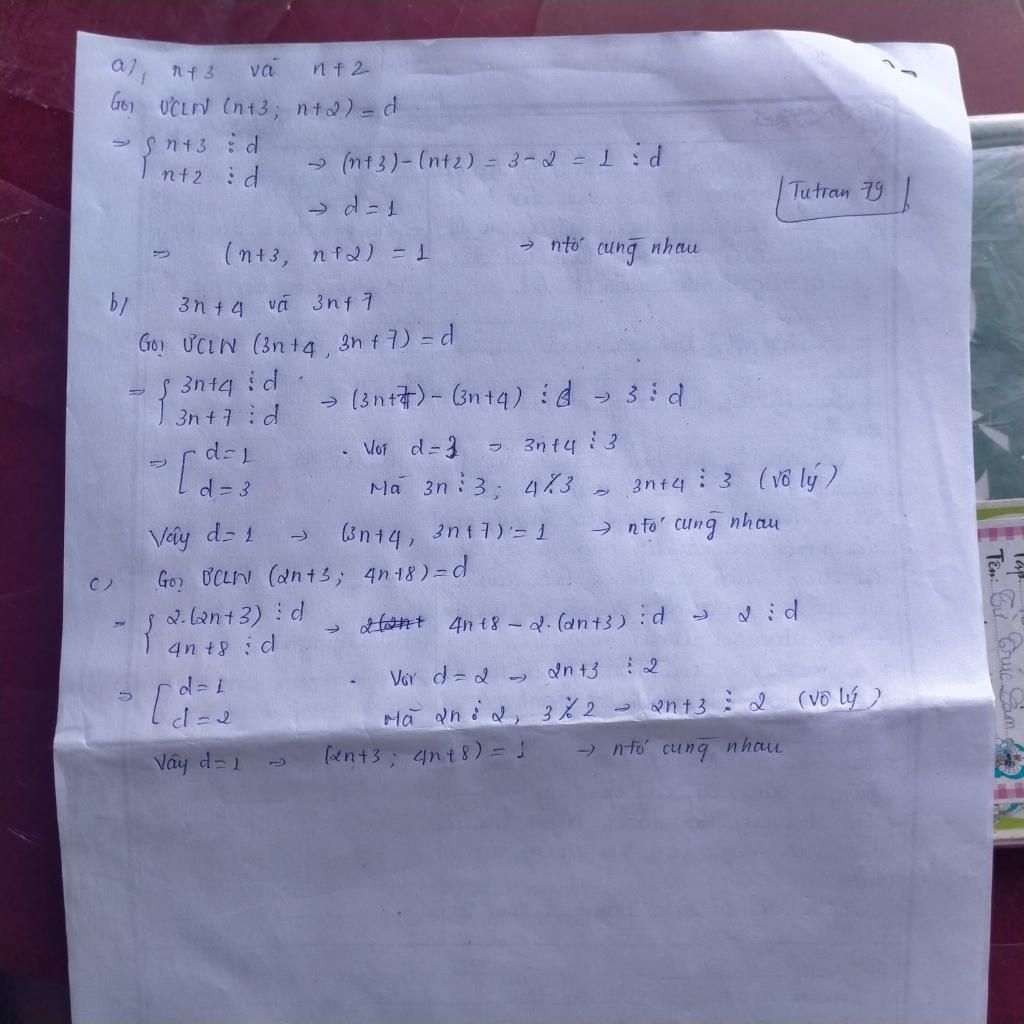 a), n+3 và n+2
Gọi ƯCLN (n+3; n+2) = d
⇒ { n+3 ⋮ d
n+2 ⋮ d → (n+3)-(n+2) = 3-2 = 1 ⋮ d
→ d = 1
Tutran 79
⇒ (n+3, n+2) = 1 → ntố cùng nhau
b) 3n+4 và 3n+7
Gọi ƯCLN (3n+4, 3n+7) = d
⇒ { 3n+4 ⋮ d
3n+7 ⋮ d → (3n+7)-(3n+4) ⋮ d → 3 ⋮ d
⇒ [ d=1 . Với d=3 ⇒ 3n+4 ⋮ 3
d=3 Mà 3n ⋮ 3; 4 ⋮̸ 3 ⇒ 3n+4 ⋮ 3 (vô lý)
Vậy d=1 → (3n+4, 3n+7) = 1 → ntố cùng nhau
c) Gọi ƯCLN (2n+3; 4n+8) = d
⇒ { 2.(2n+3) ⋮ d
4n+8 ⋮ d → 4n+8 - 2.(2n+3) ⋮ d → 2 ⋮ d
⇒ [ d=1 . Với d=2 → 2n+3 ⋮ 2
d=2 Mà 2n ⋮ 2, 3 ⋮̸ 2 → 2n+3 ⋮ 2 (vô lý)
Vậy d=1 → (2n+3; 4n+8) = 1 → ntố cùng nhau
Tên: